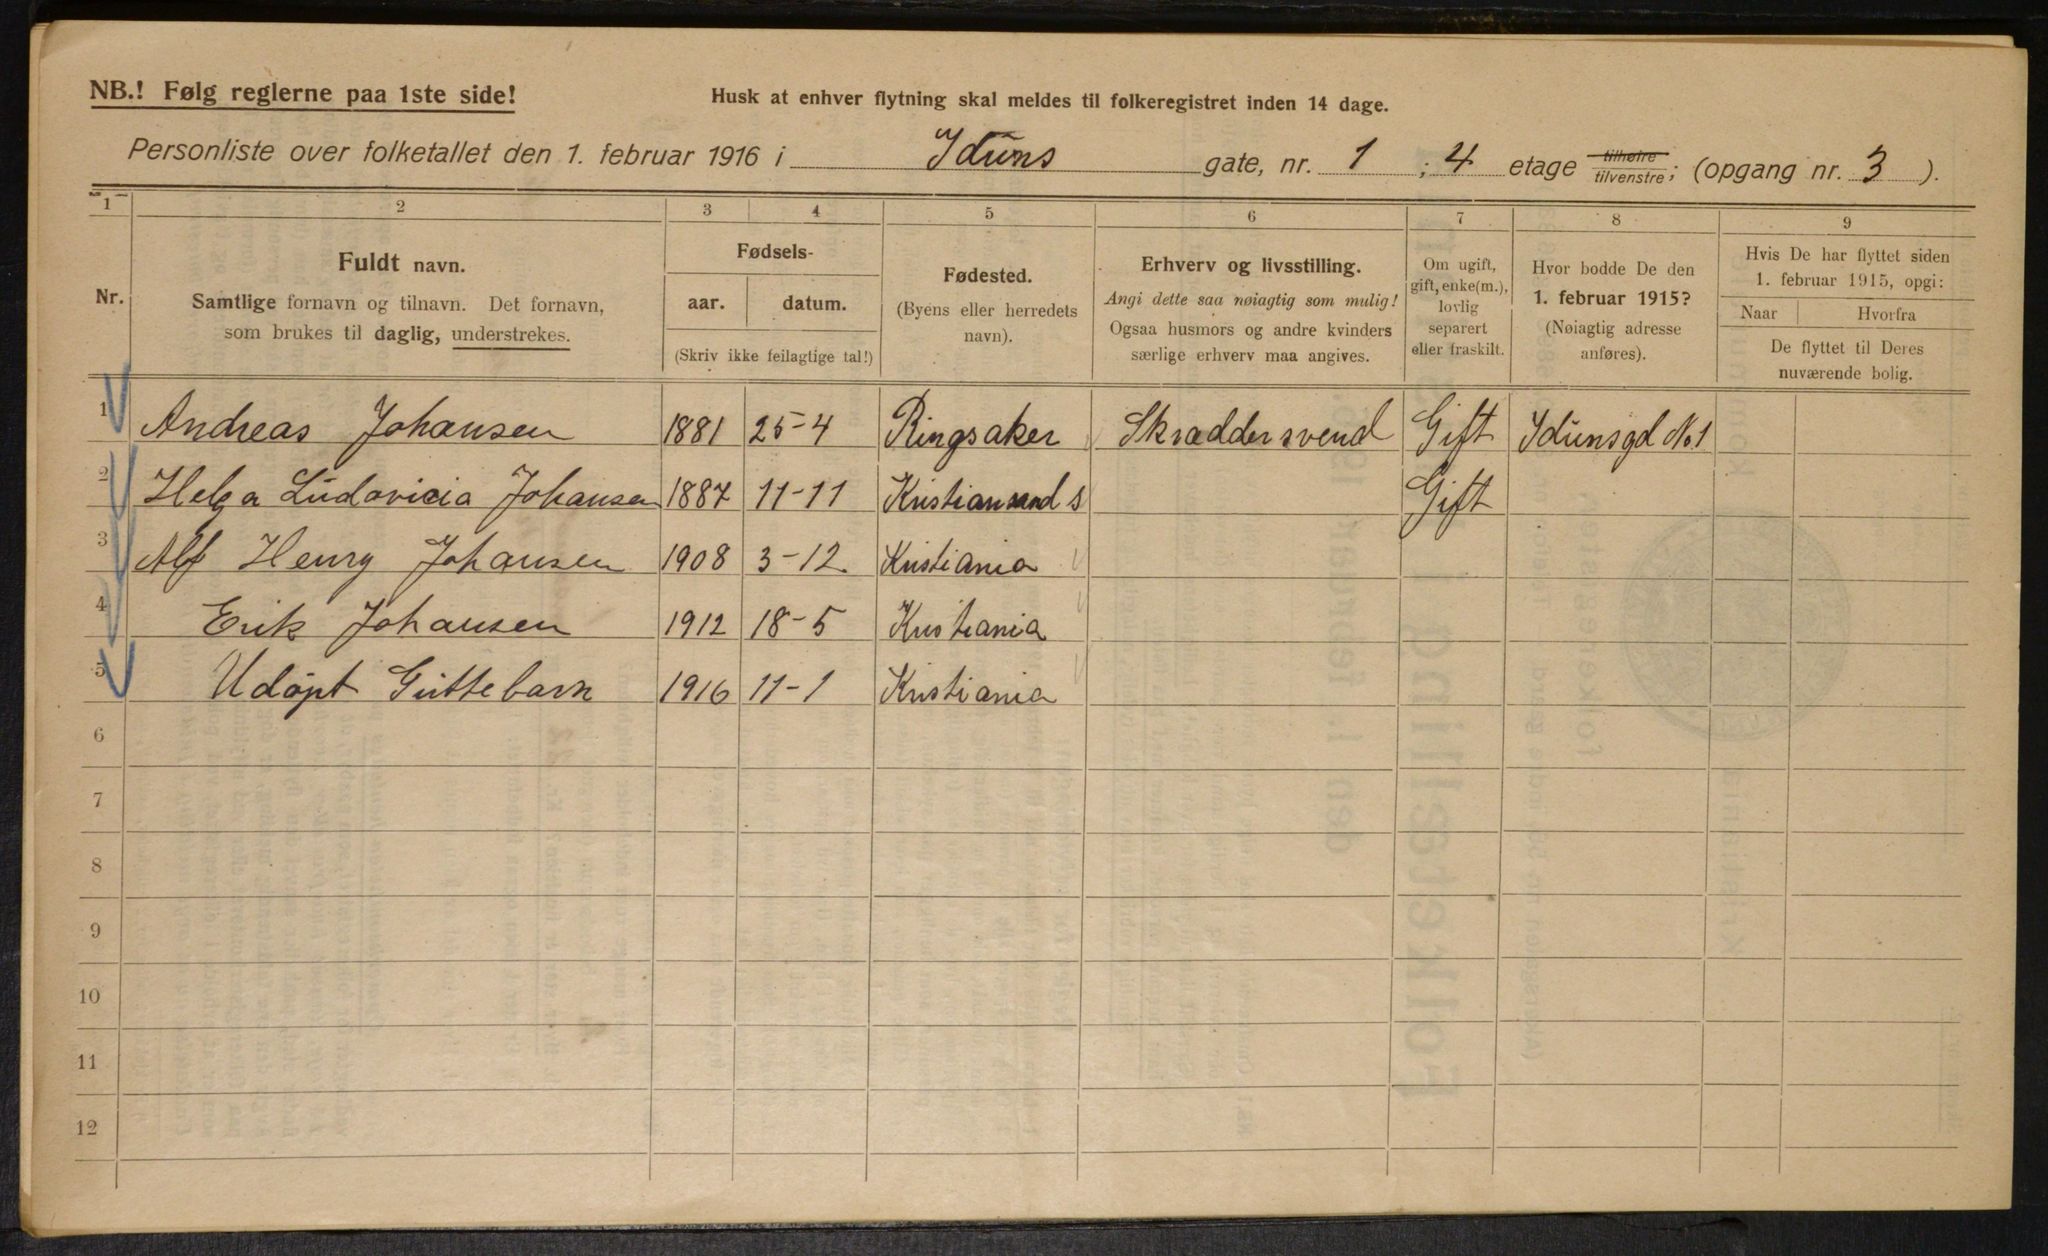 NB.! Følg reglerne paa 1ste side!
Husk at enhver flytning skal meldes til folkeregistret inden 14 dage.
Personliste over folketallet den 1. februar 1916 i Iduns gate, nr. 1 ; 4 etage tilhøire tilvenstre; (opgang nr. 3 ).
1 2 3 4 5 6 7 8 9
Nr.
Fuldt navn.
Samtlige fornavn og tilnavn. Det fornavn,
som brukes til daglig, understrekes.
Fødsels-
aar. datum.
(Skriv ikke feilagtige tal!)
Fødested.
(Byens eller herredets
navn).
Erhverv og livsstilling.
Angi dette saa nøiagtig som mulig!
Ogsaa husmors og andre kvinders
særlige erhverv maa angives.
Om ugift,
gift, enke(m.),
lovlig
separert
eller fraskilt.
Hvor bodde De den
1. februar 1915?
(Nøiagtig adresse
anføres).
Hvis De har flyttet siden
1. februar 1915, opgi:
Naar Hvorfra
De flyttet til Deres
nuværende bolig.
1 Andreas Johansen 1881 25-4 Ringsaker Skræddersvend Gift Idunsgd No. 1
2 Helga Ludovicia Johansen 1887 11-11 Kristiansand S Gift
3 Alf Henry Johansen 1908 3-12. Kristiania
4 Erik Johansen 1912 18-5 Kristiania
5 Udöpt Guttebarn 1916 11-1 Kristiania
6
7
8
9
10
11
12